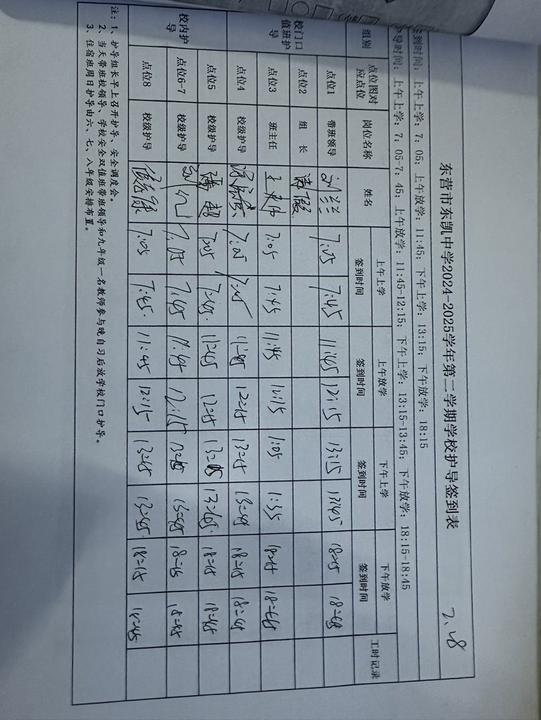 东营市东凯中学2024-2025学年第二学期学校护导签到表
2.28
签到时间：上午上学：7：05；上午放学：11:45；下午上学：13:15；下午放学：18:15
护导时间：上午上学：7：05-7：45；上午放学：11:45-12:15；下午上学：13:15-13:45；下午放学：18:15-18:45
组别 点位图对应点位 岗位名称 姓名 上午上学签到时间 上午放学签到时间 下午上学签到时间 下午放学签到时间 工时记录
校门口值班护导 点位1 带班领导 刘兰 7:05 7:45 11:45 12:15 13:15 13:45 18:15 18:45
点位2 组 长 请假
点位3 班主任 7:05 7:45 11:45 12:15 1:05 1:35 18:15 18:45
校内护导 点位4 校级护导 7:05 7:45 11:45 12:15 13:15 13:45 18:15 18:45
点位5 校级护导 7:05 7:45 11:45 12:15 13:15 13:45 18:15 18:45
点位6-7 校级护导 7:05 7:45 11:45 12:15 13:15 13:45 18:15 18:45
点位8 校级护导 7:05 7:45 11:45 12:15 13:15 13:45 18:15 18:45
注：1、护导组长早上召开护导、安全调度会。
2、当天带班校领导、学校安全双值班带班领导和九年级一名教师参与晚自习后放学校门口护导。
3、住宿班周日护导由六、七、八年级安排布置。